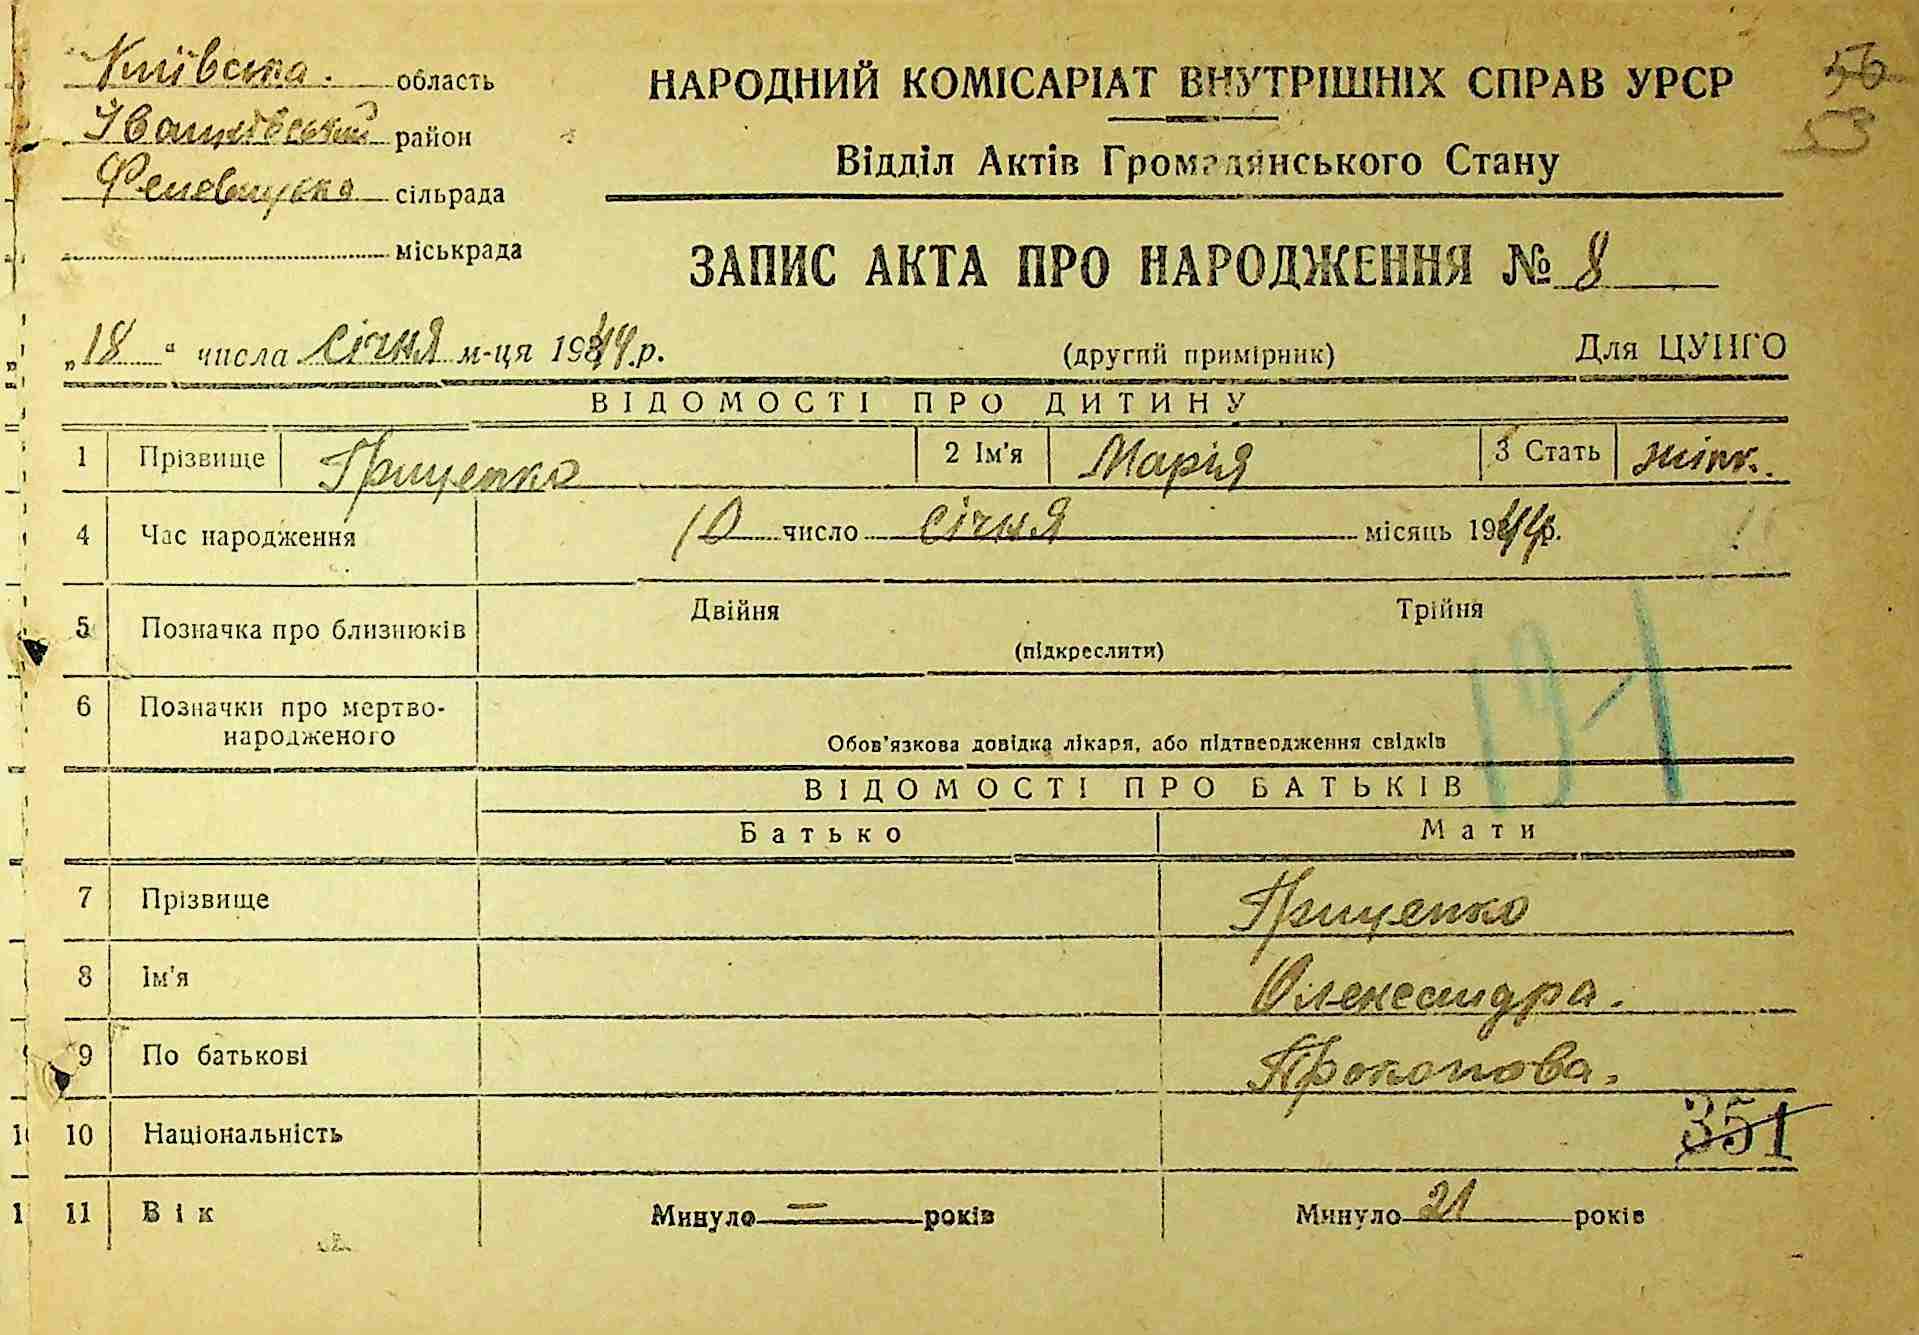 Київська область
Іванківський район
сільрада
міськрада
НАРОДНИЙ КОМІСАРІАТ ВНУТРІШНІХ СПРАВ УРСР
56
53
Відділ Актів Громадянського Стану
ЗАПИС АКТА ПРО НАРОДЖЕННЯ № 8
„18“ числа січня м-ця 1944 р.
(другий примірник)
Для ЦУНГО
ВІДОМОСТІ ПРО ДИТИНУ
1 Прізвище Грищенко 2 Ім'я Марія 3 Стать жіноч.
4 Час народження 10 число січня місяць 1944 р.
5 Позначка про близнюків Двійня Трійня
(підкреслити)
6 Позначки про мертво-
народженого
Обов'язкова довідка лікаря, або підтвердження свідків
ВІДОМОСТІ ПРО БАТЬКІВ
Батько Мати
7 Прізвище Грищенко
8 Ім'я Олександра.
9 По батькові Прокопова.
10 Національність 351
11 Вік Минуло — років Минуло 21 років